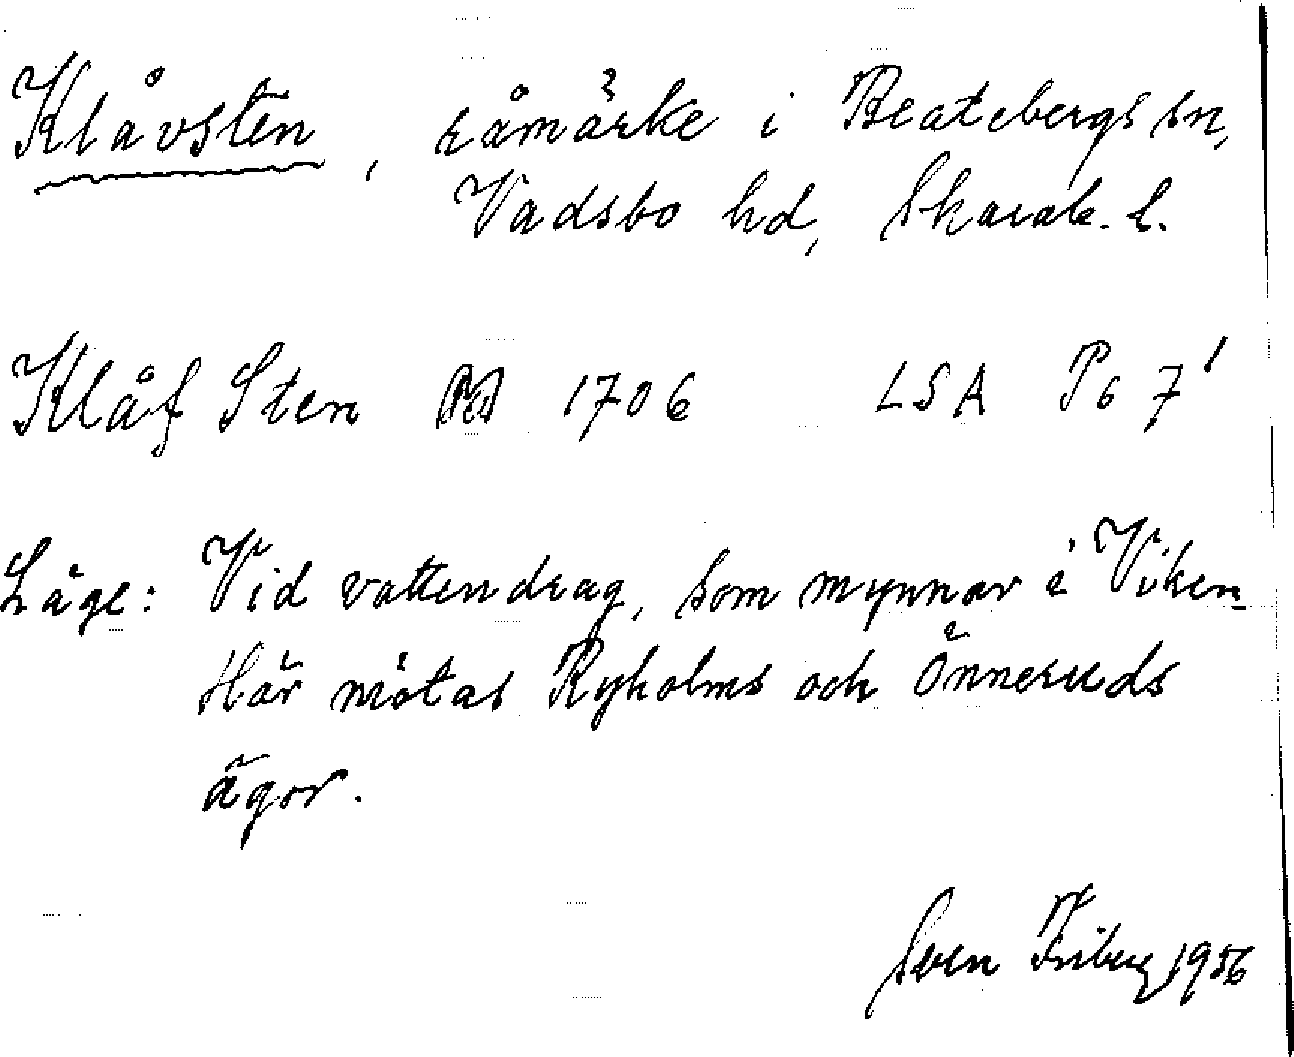 Klåvsten, råmärke i Beatebergs sn,
Vadsbo hd, Skarab. l.
Klåf Sten 1706 LSA P6 7¹
Läge: Vid vattendrag, som mynnar i Viken
Här mötas Ryholms och Önneruds
ägor.
Sven Friberg 1956